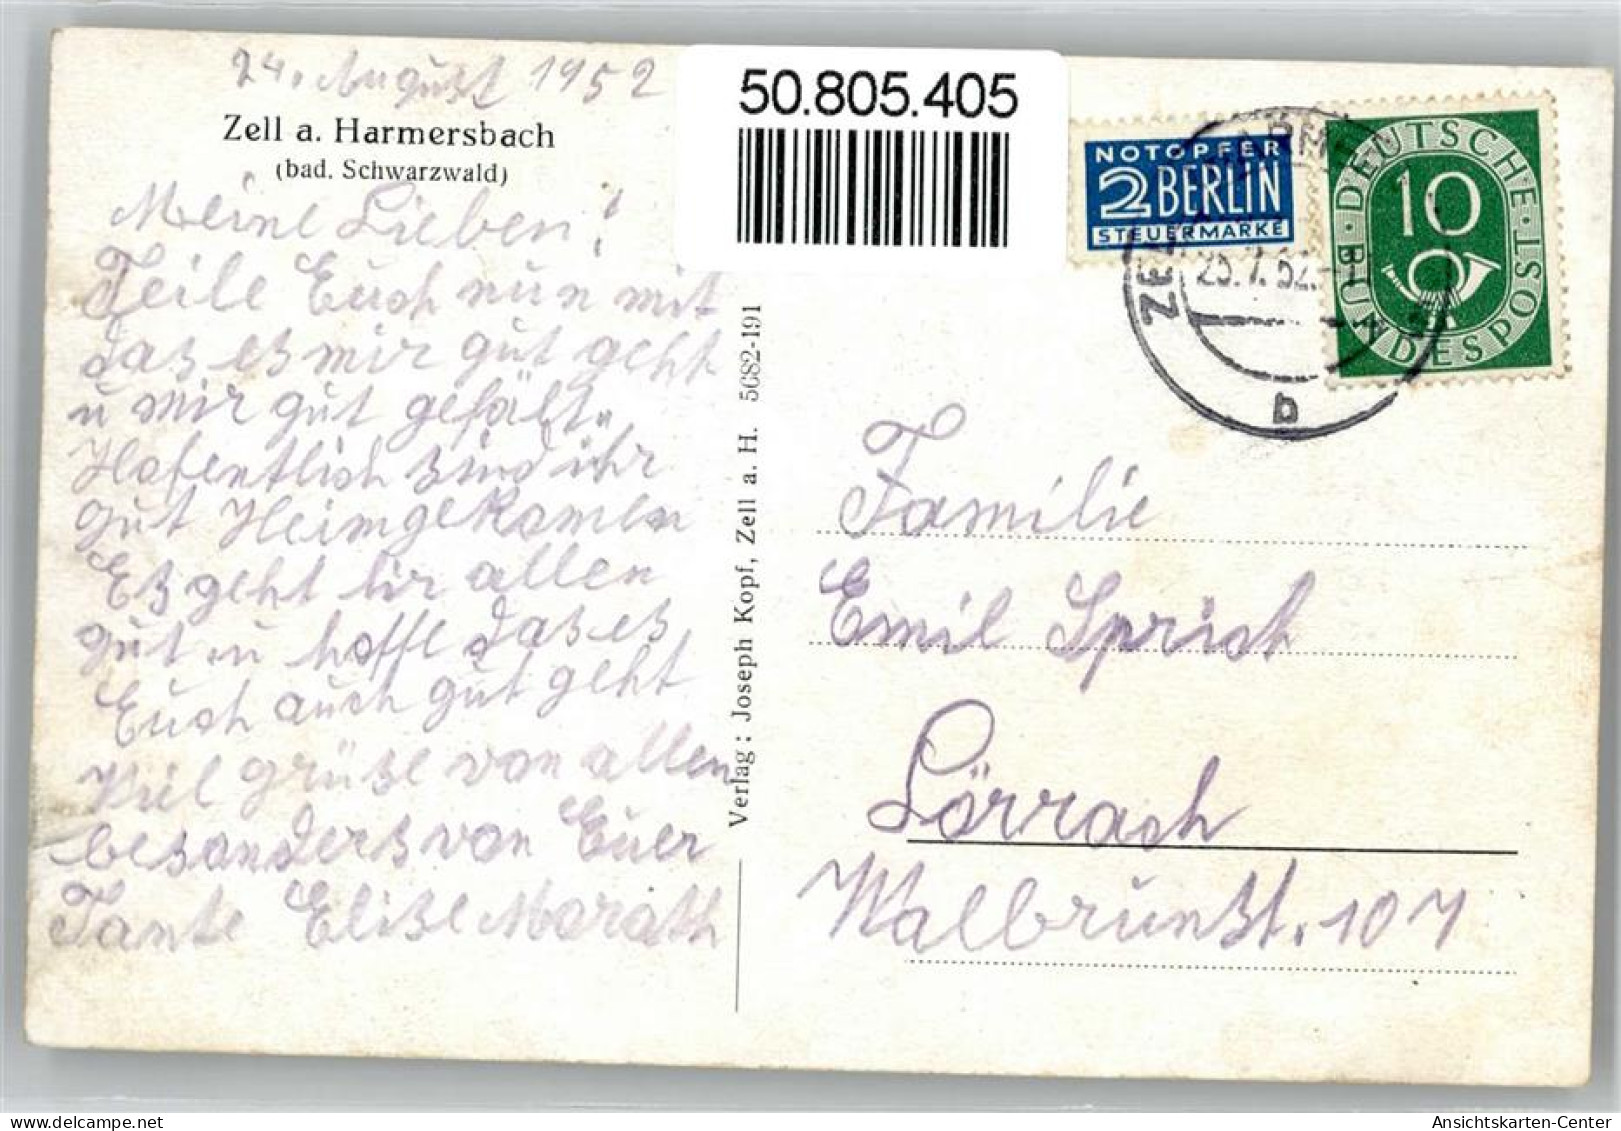 24. August 1952
Zell a. Harmersbach
(bad. Schwarzwald)
Meine Lieben!
Teile Euch nun mit
das es mir gut geht
u mir gut gefält.
Hofentlich sind ihr
gut Heimgekomen
Es geht hir allen
gut u hoffe das es
Euch auch gut geht
Viel grüße von allen
besonders von Euer
Tante Elise Morath
Verlag: Joseph Kopf, Zell a. H. 5082-191
50.805.405
NOTOPFER
2 BERLIN
STEUERMARKE
DEUTSCHE BUNDESPOST
10
ZELL
b
Familie
Emil Sprich
Lörrach
Walbrunst. 107
Ansichtskarten-Center